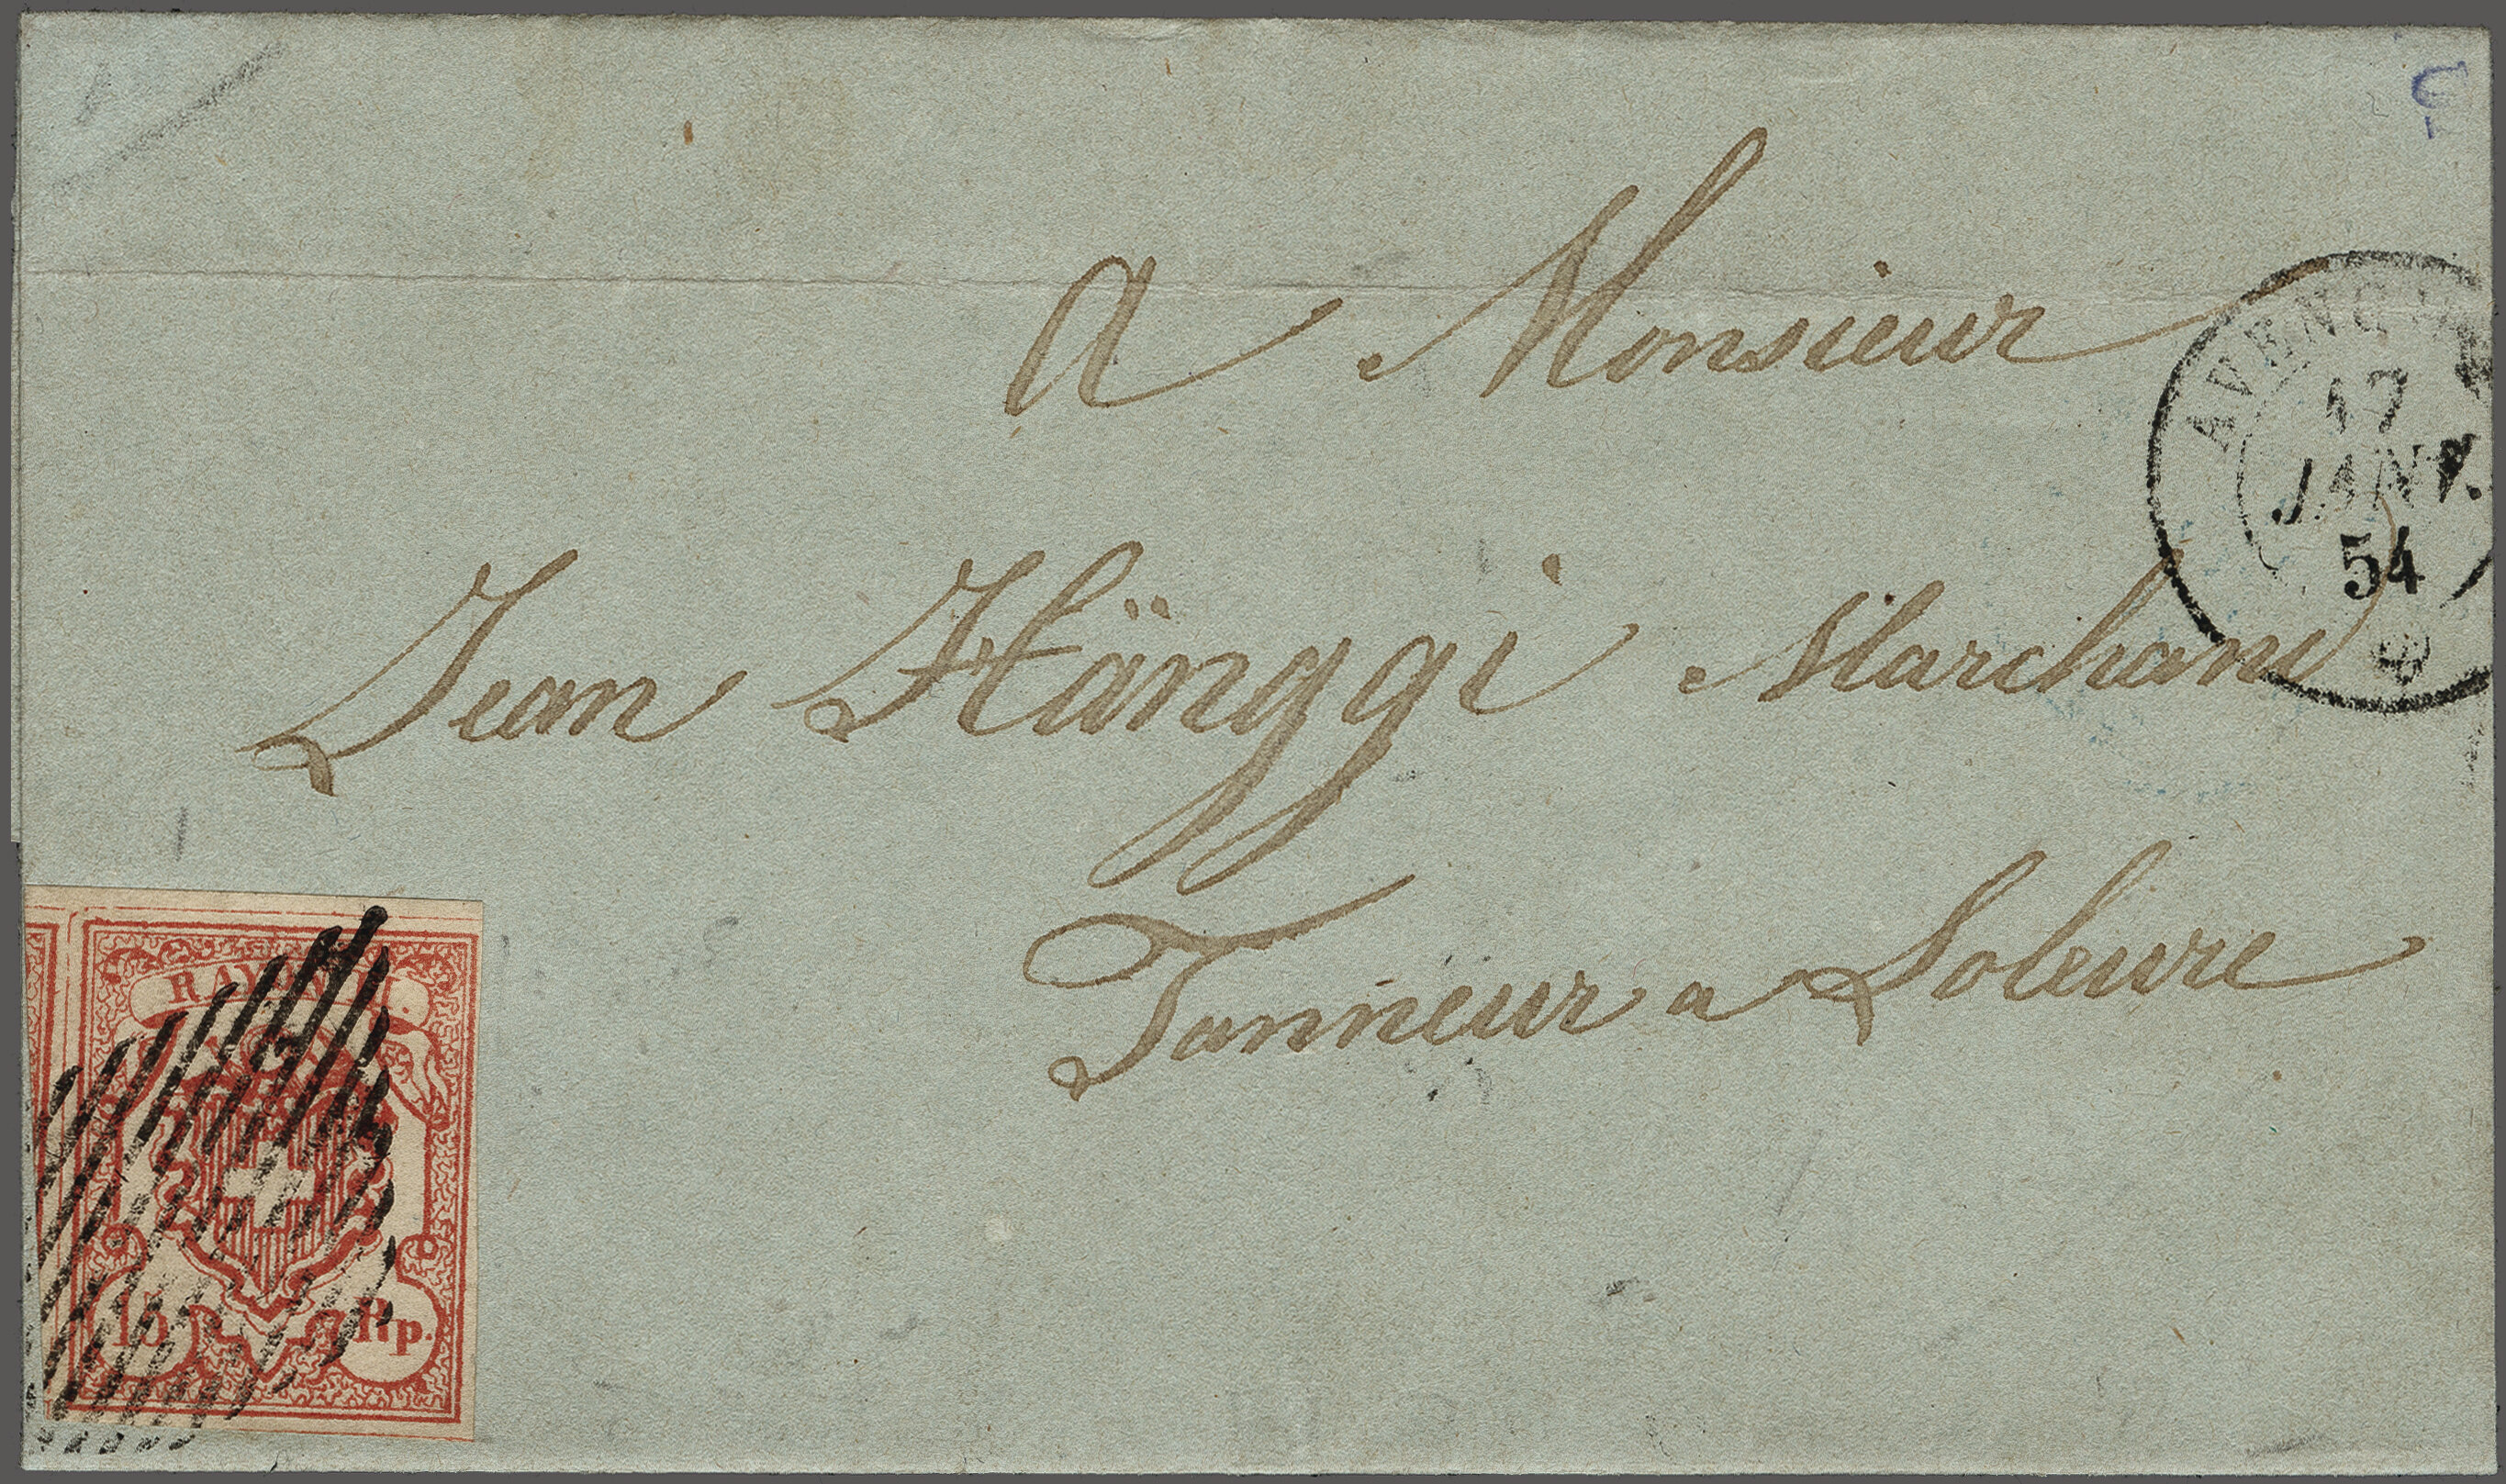 A Monsieur
Jean Hänggi Marchand
Tanneur a Soleure
AVENCHES
17
JANV.
54
RAYON III.
15 Rp.